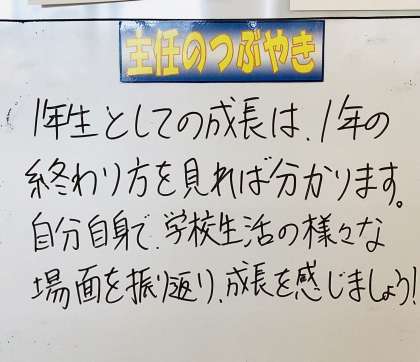 主任のつぶやき
1年生としての成長は、1年の
終わり方を見れば分かります。
自分自身で、学校生活の様々な
場面を振り返り、成長を感じましょう!